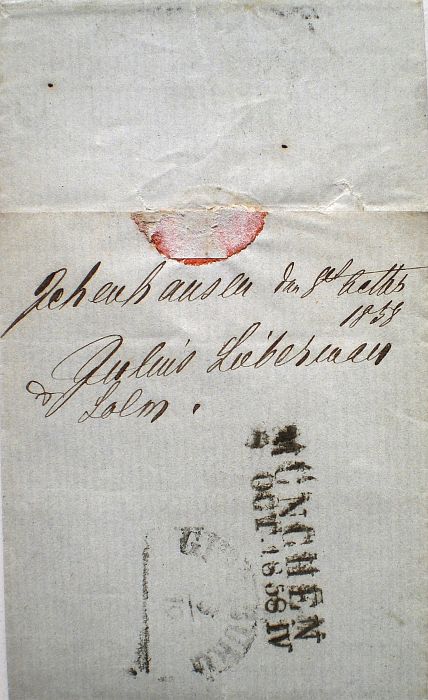 Ichenhausen den 8t Octbr
1858
Julius Lieberman
Solm.
MÜNCHEN
OCT. 16 58 IV